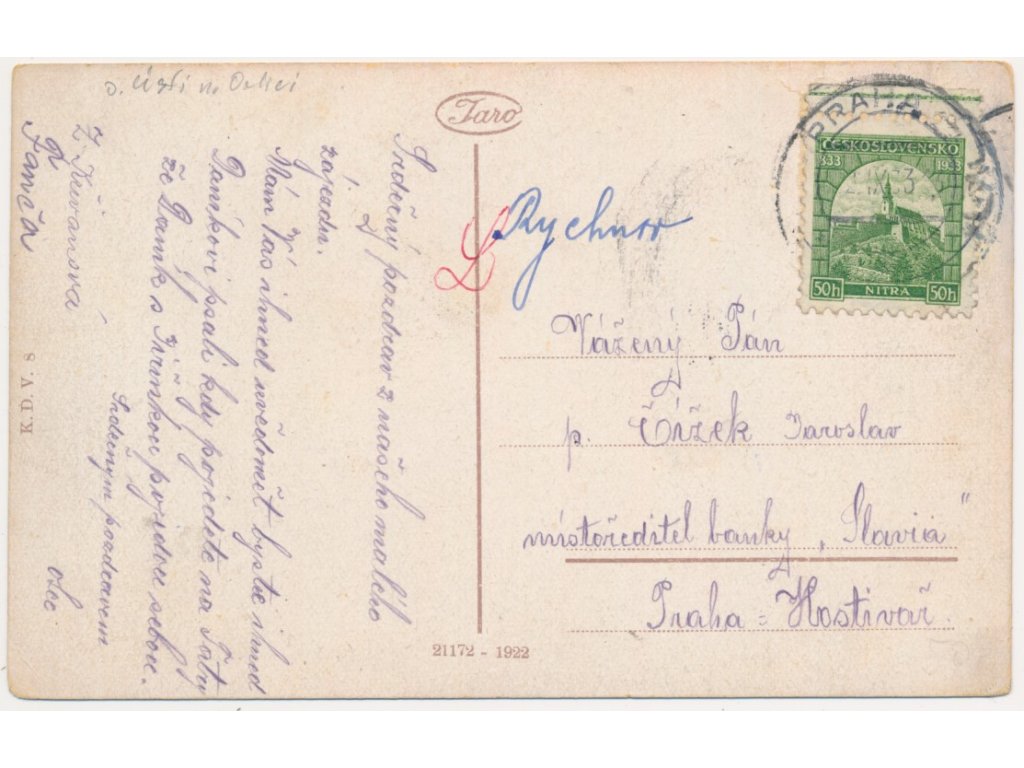 o. Ústí n. Orlicí
Taro
Srdečný pozdrav z našeho malého
zájezdu.
Mám Vás ihned uvědomit bystě ihned
Daníkovi psali kdy pojedete na Tatry
že Daník s Irenkou pojedou sebou.
Srdečným pozdravem
otec
Z. Křivánková
Fanča
K. D. V. 8
L
Rychnov
Vážený Pán
p. Čížek Jaroslav
místořěditel banky „Slavia“
Praha = Hostivař.
21172 - 1922
PRAHA
ČESKOSLOVENSKO
833 1933
50h NITRA 50h